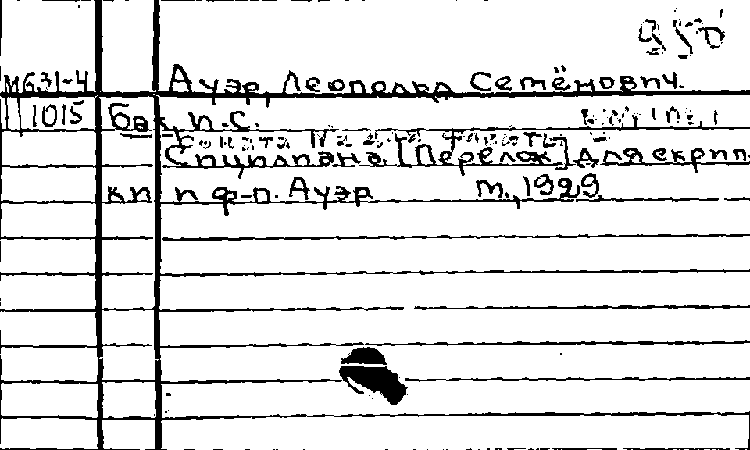 950
М631-4 Ауэр, Леопольд Семёнович.
1015 Бах, И.С.
Соната № для флейты
Сицилиана. [Перелож.] для скрип-
ки и ф-п. Ауэр м., 1929